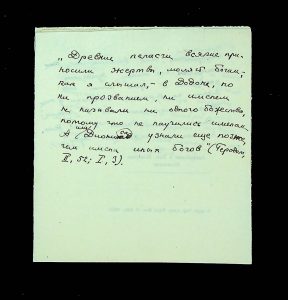 „Древние пеласги всякие при-
носили жертвы, молясь богам,
как я слышал, – в Додоне, но
ни прозванием, ни именем
не называли ни одного божества,
потому что не научились именам.
А имя Диониса узнали еще позже,
чем имена иных богов" (Геродот,
II, 52; I, 3).